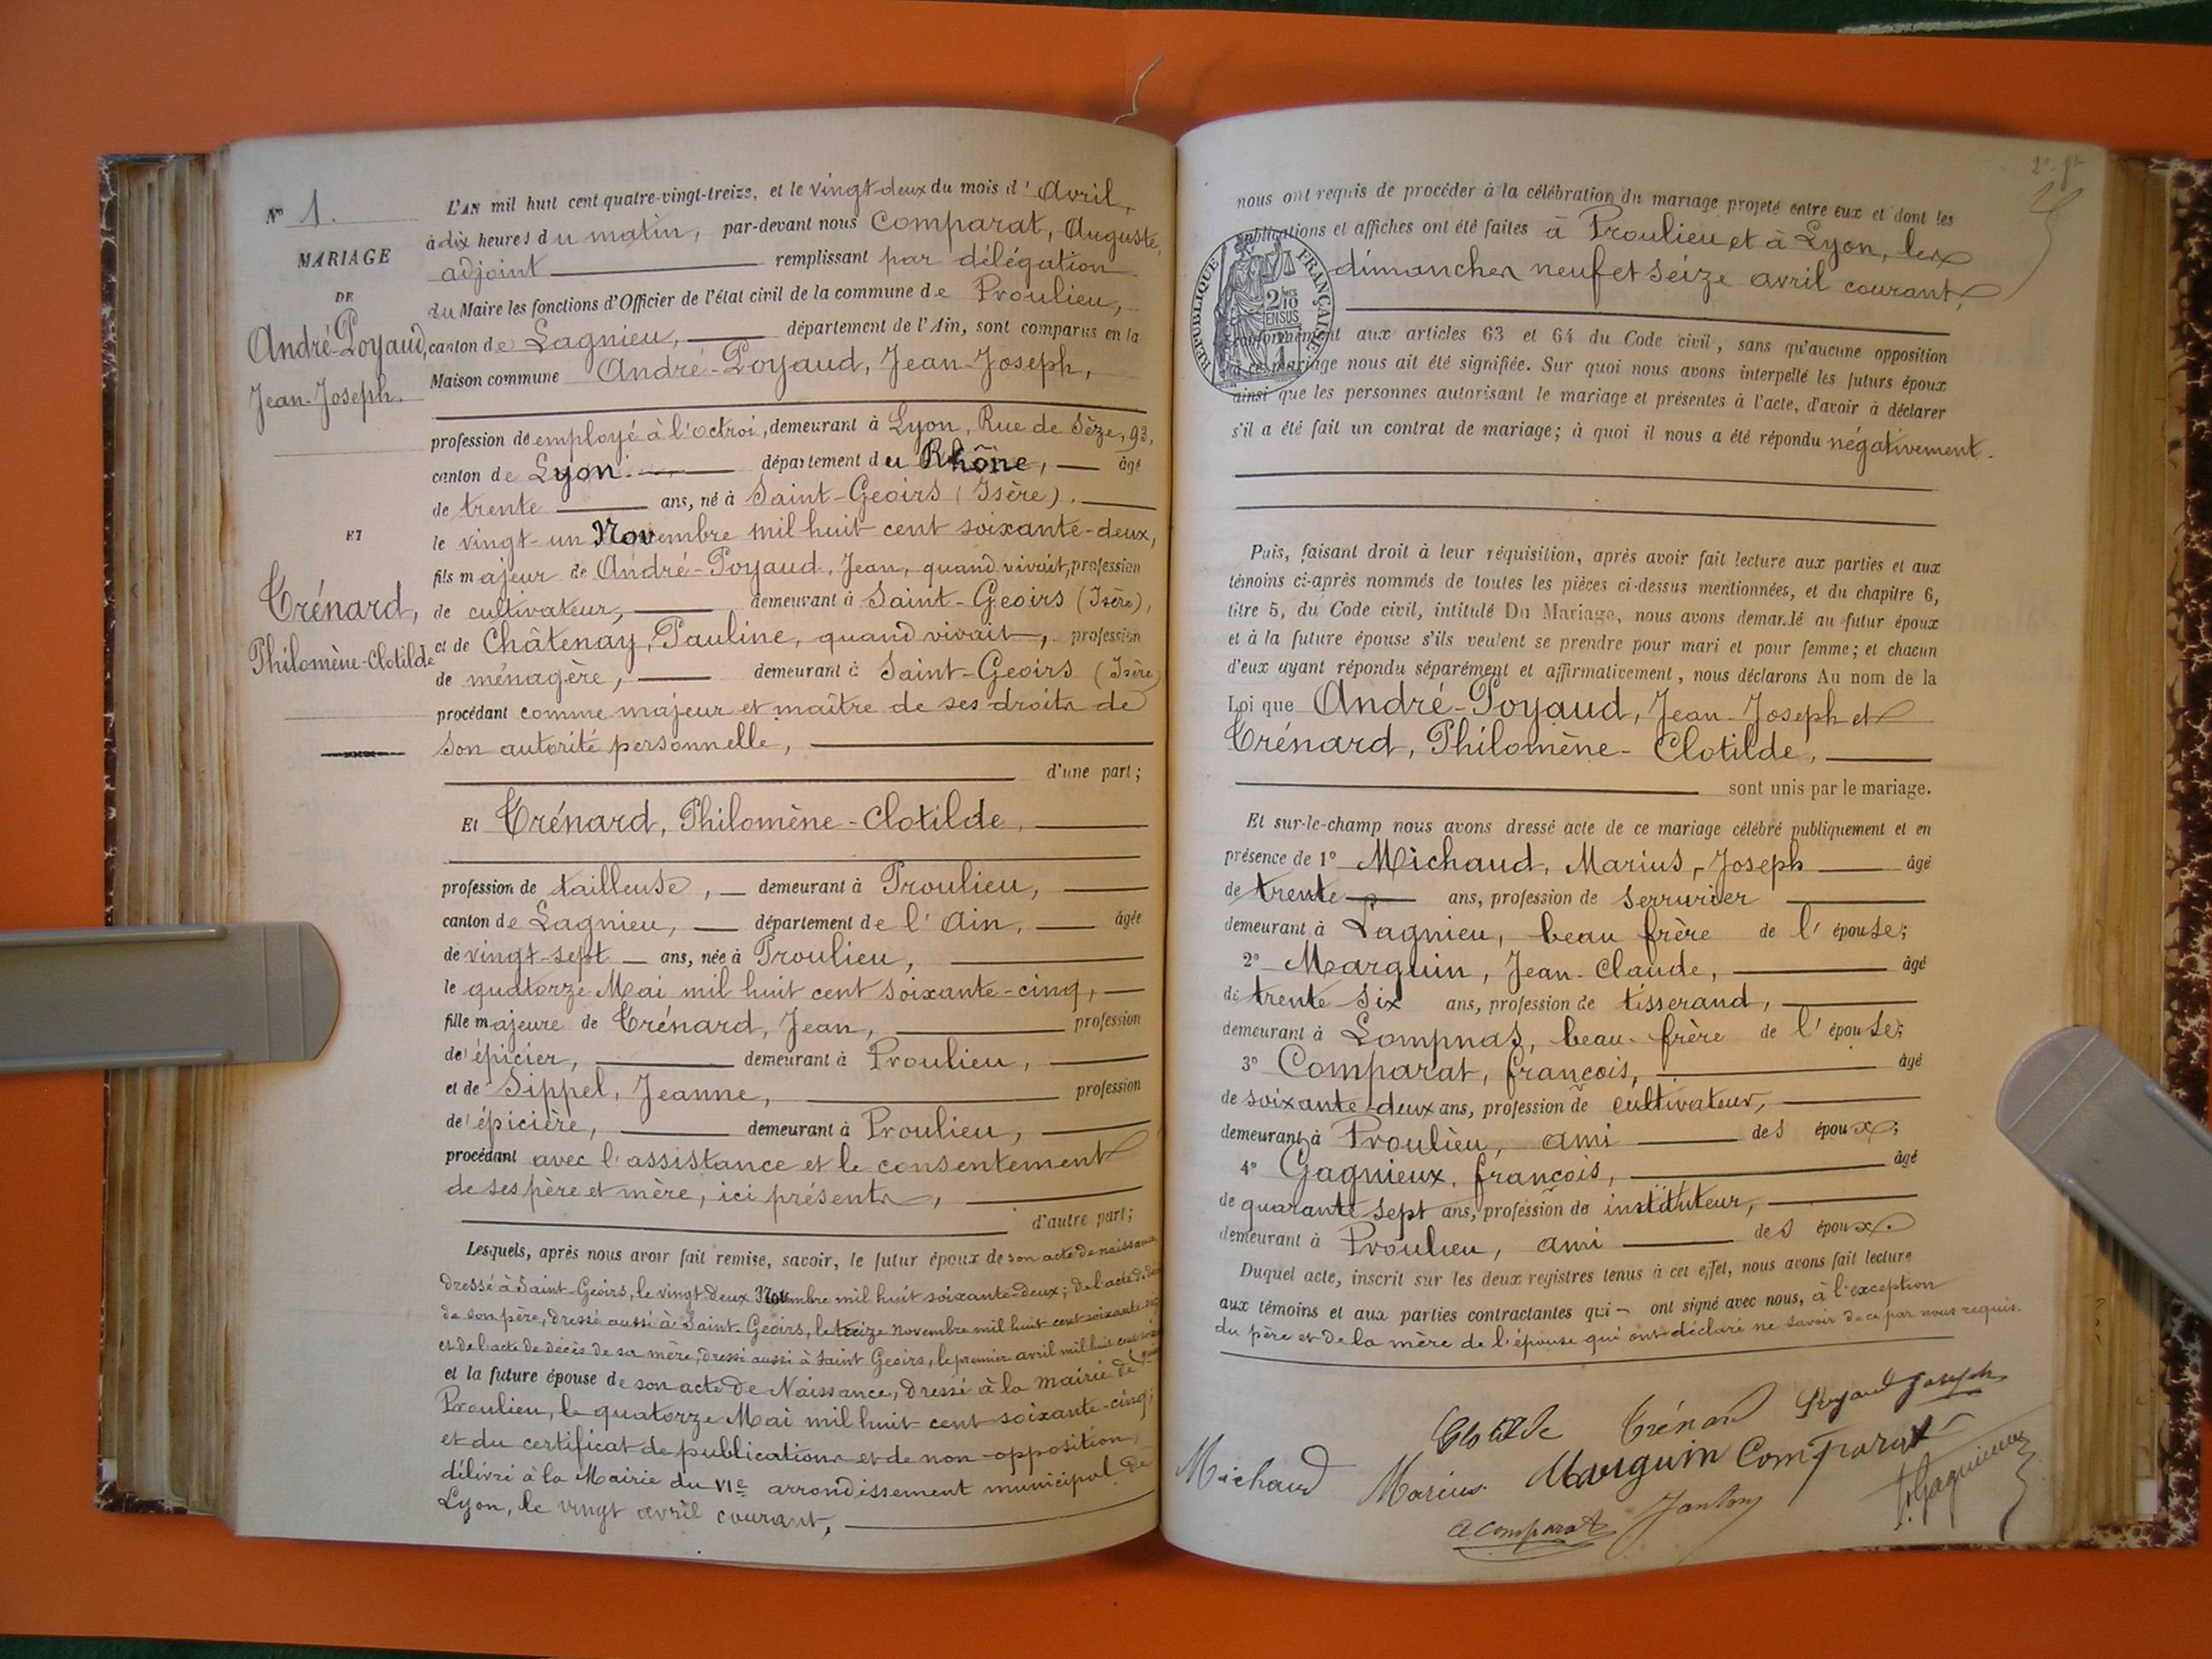 N° 1.
MARIAGE
DE
André-Poyaud,
Jean-Joseph.
ET
Trénard,
Philomène-Clotilde
L'AN mil huit cent quatre-vingt-treize, et le vingt-deux du mois d'Avril,
à dix heures du matin, par-devant nous Comparat, Auguste,
adjoint remplissant par délégation
du Maire les fonctions d'Officier de l'état civil de la commune de Proulieu,
canton de Lagnieu, département de l'Ain, sont comparus en la
Maison commune André-Poyaud, Jean-Joseph,
profession de employé à l'octroi, demeurant à Lyon, Rue de Sèze, 93,
canton de Lyon département du Rhône, âgé
de trente ans, né à Saint-Geoirs (Isère).
le vingt-un Novembre mil huit cent soixante-deux,
fils majeur de André-Poyaud, Jean, quand vivait, profession
de cultivateur, demeurant à Saint-Geoirs (Isère),
et de Châtenay, Pauline, quand vivait, profession
de ménagère, demeurant à Saint-Geoirs (Isère)
procédant comme majeur et maître de ses droits de
son autorité personnelle,
d'une part;
Et Trénard, Philomène-Clotilde,
profession de tailleuse, demeurant à Proulieu,
canton de Lagnieu, département de l'Ain, âgée
de vingt-sept ans, née à Proulieu,
le quatorze Mai mil huit cent soixante-cinq,
fille majeure de Trénard, Jean, profession
de épicier, demeurant à Proulieu,
et de Sippel, Jeanne, profession
de épicière, demeurant à Proulieu,
procédant avec l'assistance et le consentement
de ses père et mère, ici présents,
d'autre part;
Lesquels, après nous avoir fait remise, savoir, le futur époux de son acte de naissance
dressé à Saint-Geoirs, le vingt deux Novembre mil huit soixante-deux; de l'acte de
de son père, dressé aussi à Saint-Geoirs, le treize novembre mil huit cent soixante
et de l'acte de décès de sa mère, dressé aussi à Saint Geoirs, le premier avril mil huit cent
et la future épouse de son acte de Naissance, dressé à la mairie de
Proulieu, le quatorze Mai mil huit cent soixante-cinq;
et du certificat de publications et de non-opposition,
délivré à la Mairie du VIe arrondissement municipal de
Lyon, le vingt avril courant,
nous ont requis de procéder à la célébration du mariage projeté entre eux et dont les
publications et affiches ont été faites à Proulieu et à Lyon, les
dimanches neuf et seize avril courant,
RÉPUBLIQUE FRANÇAISE
2/10
EN SUS
conformément aux articles 63 et 64 du Code civil, sans qu'aucune opposition
à ce mariage nous ait été signifiée. Sur quoi nous avons interpellé les futurs époux
ainsi que les personnes autorisant le mariage et présentes à l'acte, d'avoir à déclarer
s'il a été fait un contrat de mariage; à quoi il nous a été répondu négativement.
Puis, faisant droit à leur réquisition, après avoir fait lecture aux parties et aux
témoins ci-après nommés de toutes les pièces ci-dessus mentionnées, et du chapitre 6,
titre 5, du Code civil, intitulé Du Mariage, nous avons demandé au futur époux
et à la future épouse s'ils veulent se prendre pour mari et pour femme; et chacun
d'eux ayant répondu séparément et affirmativement, nous déclarons Au nom de la
Loi que André-Poyaud, Jean-Joseph et
Trénard, Philomène-Clotilde,
sont unis par le mariage.
Et sur-le-champ nous avons dressé acte de ce mariage célébré publiquement et en
présence de 1° Michaud, Marius-Joseph âgé
de trente ans, profession de serrurier
demeurant à Lagnieu, beau frère de l'épouse;
2° Marguin, Jean-Claude, âgé
de trente six ans, profession de tisserand,
demeurant à Lompnas, beau-frère de l'épouse;
3° Comparat, françois, âgé
de soixante-deux ans, profession de cultivateur,
demeurant à Proulieu, ami des époux;
4° Gagnieux, françois, âgé
de quarante sept ans, profession de instituteur,
demeurant à Proulieu, ami des époux.
Duquel acte, inscrit sur les deux registres tenus à cet effet, nous avons fait lecture
aux témoins et aux parties contractantes qui ont signé avec nous, à l'exception
du père et de la mère de l'épouse qui ont déclaré ne savoir de ce par nous requis.
Clotilde Trénard Poyaud Joseph
Michaud Marius Marguin Comparat
A Comparat F. Gagnieux